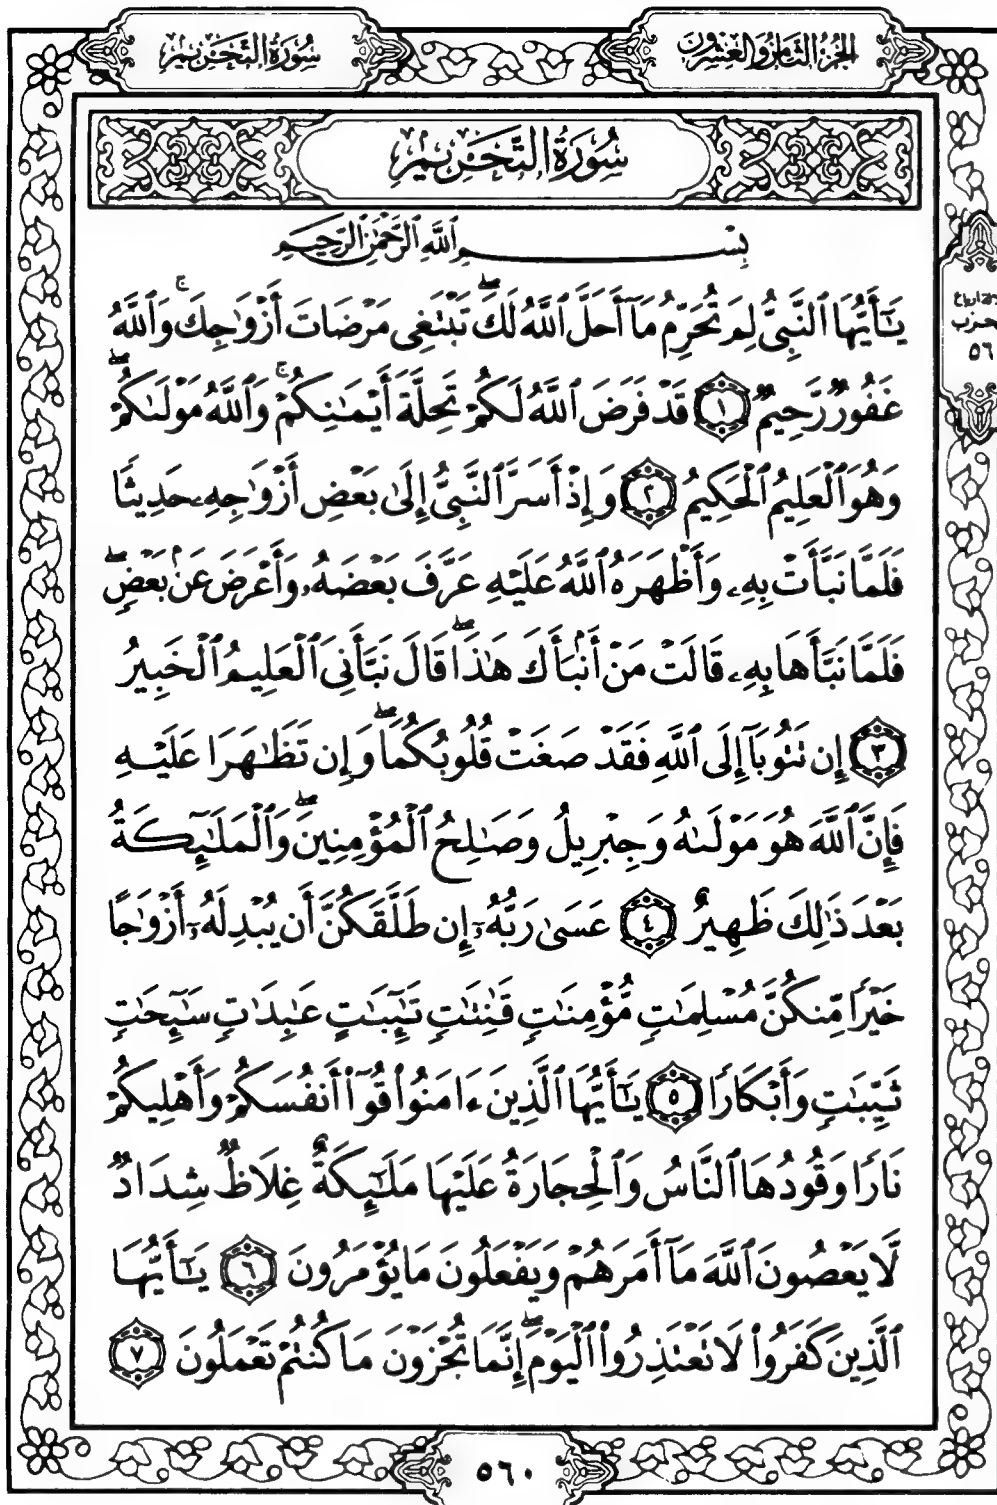 الجزء الثامن والعشرون
سورة التحريم
سُورَةُ التَّحْرِيمِ
بِسْمِ ٱللَّهِ ٱلرَّحْمَٰنِ ٱلرَّحِيمِ
يَٰٓأَيُّهَا ٱلنَّبِىُّ لِمَ تُحَرِّمُ مَآ أَحَلَّ ٱللَّهُ لَكَ ۖ تَبْتَغِى مَرْضَاتَ أَزْوَٰجِكَ ۚ وَٱللَّهُ
غَفُورٌ رَّحِيمٌ ١ قَدْ فَرَضَ ٱللَّهُ لَكُمْ تَحِلَّةَ أَيْمَٰنِكُمْ ۚ وَٱللَّهُ مَوْلَىٰكُمْ ۖ
وَهُوَ ٱلْعَلِيمُ ٱلْحَكِيمُ ٢ وَإِذْ أَسَرَّ ٱلنَّبِىُّ إِلَىٰ بَعْضِ أَزْوَٰجِهِۦ حَدِيثًا
فَلَمَّا نَبَّأَتْ بِهِۦ وَأَظْهَرَهُ ٱللَّهُ عَلَيْهِ عَرَّفَ بَعْضَهُۥ وَأَعْرَضَ عَنۢ بَعْضٍ ۖ
فَلَمَّا نَبَّأَهَا بِهِۦ قَالَتْ مَنْ أَنۢبَأَكَ هَٰذَا ۖ قَالَ نَبَّأَنِىَ ٱلْعَلِيمُ ٱلْخَبِيرُ
٣ إِن تَتُوبَآ إِلَى ٱللَّهِ فَقَدْ صَغَتْ قُلُوبُكُمَا ۖ وَإِن تَظَٰهَرَا عَلَيْهِ
فَإِنَّ ٱللَّهَ هُوَ مَوْلَىٰهُ وَجِبْرِيلُ وَصَٰلِحُ ٱلْمُؤْمِنِينَ ۖ وَٱلْمَلَٰٓئِكَةُ
بَعْدَ ذَٰلِكَ ظَهِيرٌ ٤ عَسَىٰ رَبُّهُۥٓ إِن طَلَّقَكُنَّ أَن يُبْدِلَهُۥٓ أَزْوَٰجًا
خَيْرًا مِّنكُنَّ مُسْلِمَٰتٍ مُّؤْمِنَٰتٍ قَٰنِتَٰتٍ تَٰٓئِبَٰتٍ عَٰبِدَٰتٍ سَٰٓئِحَٰتٍ
ثَيِّبَٰتٍ وَأَبْكَارًا ٥ يَٰٓأَيُّهَا ٱلَّذِينَ ءَامَنُوا۟ قُوٓا۟ أَنفُسَكُمْ وَأَهْلِيكُمْ
نَارًا وَقُودُهَا ٱلنَّاسُ وَٱلْحِجَارَةُ عَلَيْهَا مَلَٰٓئِكَةٌ غِلَاظٌ شِدَادٌ
لَّا يَعْصُونَ ٱللَّهَ مَآ أَمَرَهُمْ وَيَفْعَلُونَ مَا يُؤْمَرُونَ ٦ يَٰٓأَيُّهَا
ٱلَّذِينَ كَفَرُوا۟ لَا تَعْتَذِرُوا۟ ٱلْيَوْمَ ۖ إِنَّمَا تُجْزَوْنَ مَا كُنتُمْ تَعْمَلُونَ ٧
أرباع
حزب
٥٦
٥٦٠